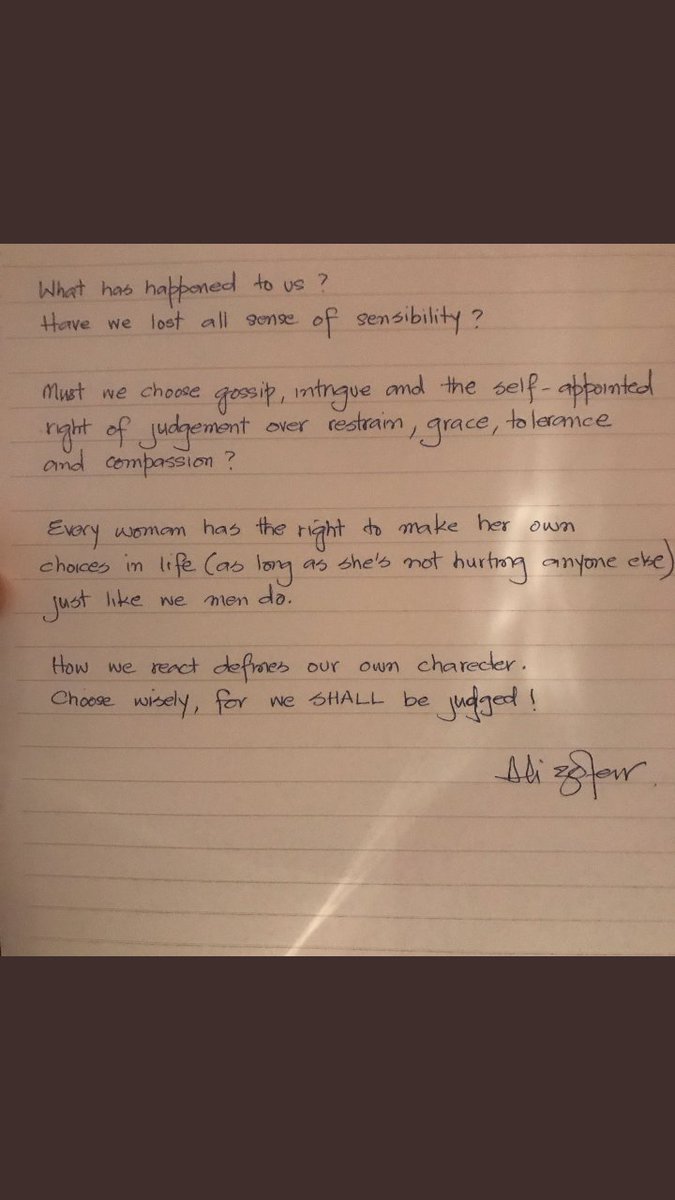 What has happened to us ?
Have we lost all sense of sensibility ?
Must we choose gossip, intrigue and the self-appointed
right of judgement over restrain, grace, tolerance
and compassion ?
Every woman has the right to make her own
choices in life (as long as she's not hurting anyone else)
just like we men do.
How we react defines our own charecter.
Choose wisely, for we SHALL be judged !
Ali Zafar